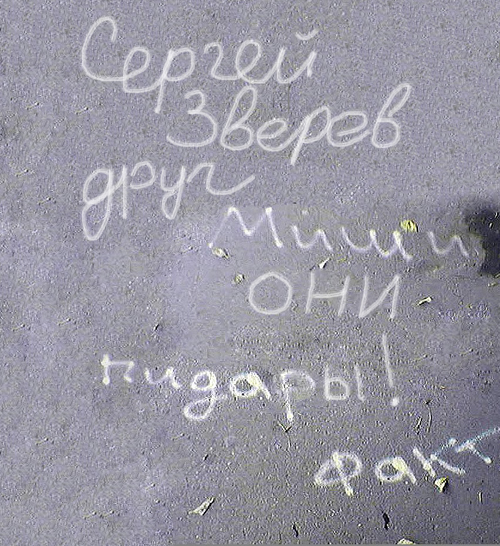 Сергей
Зверев
друг
Миши
ОНИ
пидары!
Факт